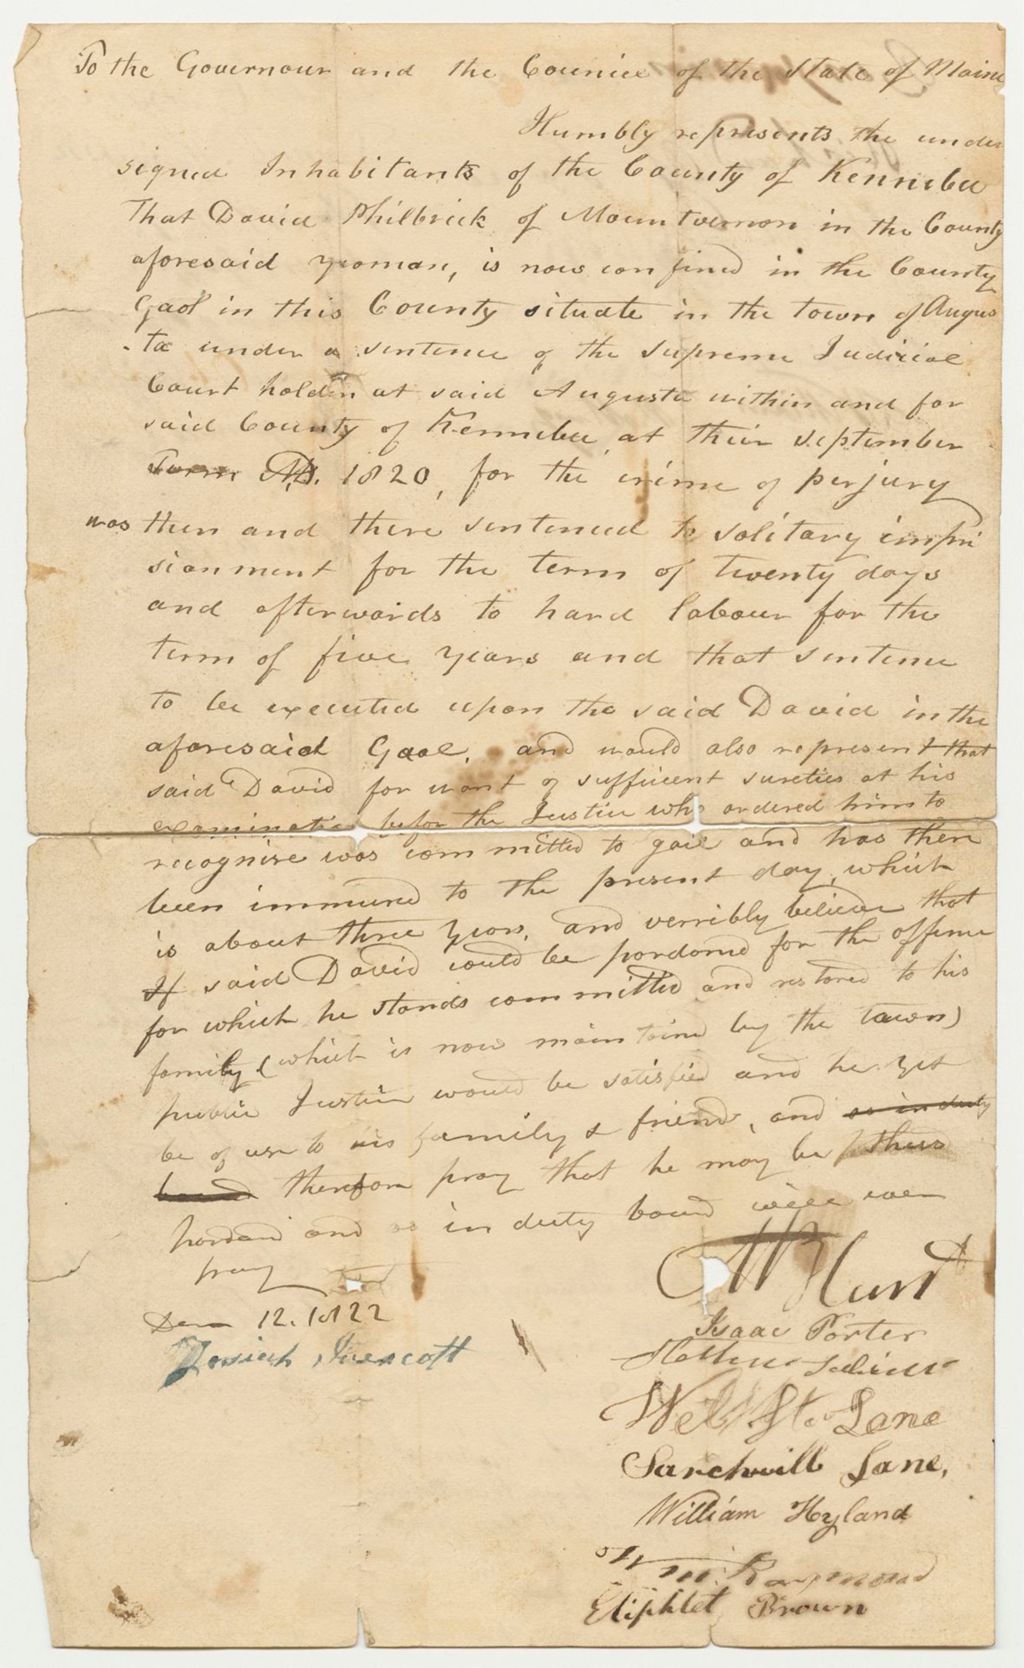 To the Governour and the Councel of the State of Maine
Humbly represents the under
signed Inhabitants of the County of Kennebec
That David Philbrick of Mountvernon in the County
aforesaid yeoman, is now confined in the County
Gaol in this County situate in the town of Augus
-ta under a sentence of the Supreme Judicial
Court holden at said Augusta within and for
said County of Kennebec at their September
Term AD. 1820, for the crime of perjury
was then and there sentenced to solitary impri
sionment for the term of twenty days
and afterwards to hard labour for the
term of five years and that sentence
to be executed upon the said David in the
aforesaid Gaol, and would also represent that
said David for want of sufficent sureties at his
examination before the Justice who ordered him to
recognise was committed to gail and has there
been immured to the present day, which
is about three years, and verribly believe that
If said David could be pardoned for the offence
for which he stands committed and restored to his
family (which is now maintaind by the town)
public Justice would be satisfied and he yet
be of use to his family & friends, and as in duty
bound therefore pray that he may be thus
pardond and as in duty bound will ever
pray
Decm 12. 1822
Josiah Prescott
Hunt
Isaac Porter
Lane
Sarchwill Lane,
William Hyland
Wm. Raymond
Eliphlet Brown